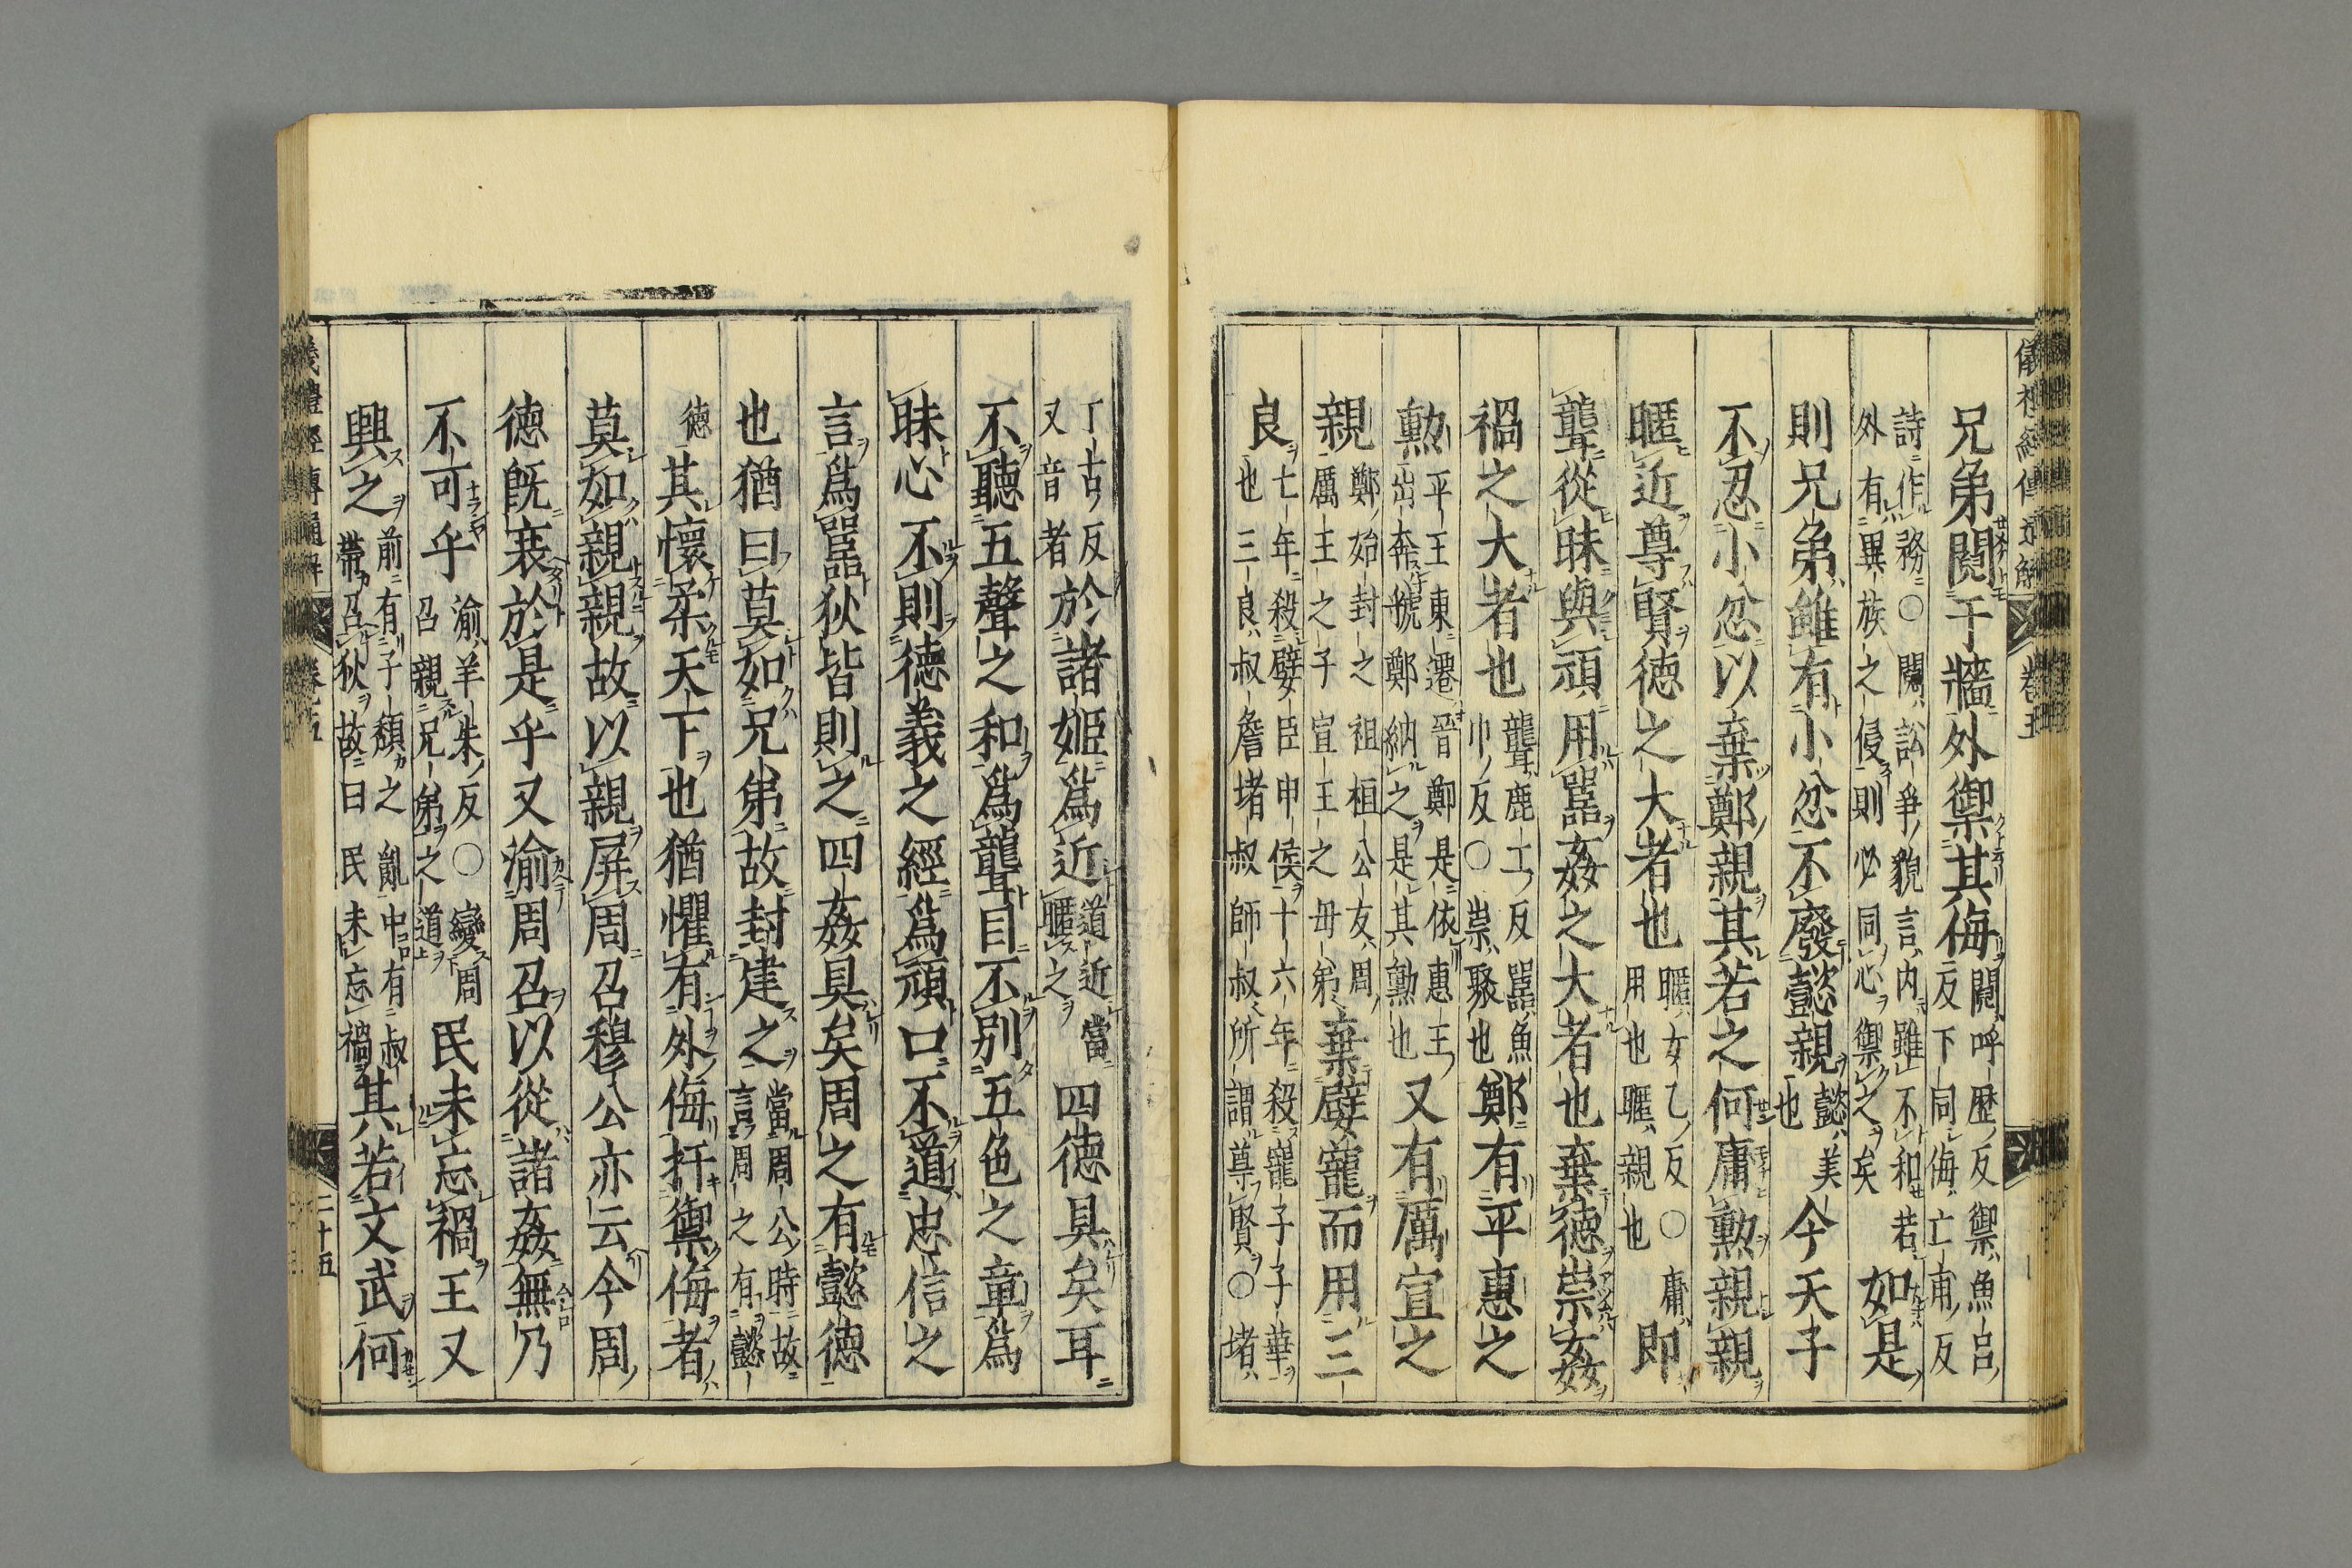 儀禮經傳通解 卷五
兄弟鬩于牆外禦其侮鬩呼歷反禦魚呂
反下同侮亡甫反
詩作務○鬩訟爭貌言內雖不和若
外有異族之侵則必同心禦之矣如是
則兄弟雖有小忿不廢懿親懿美
也今天子
不忍小忿以棄鄭親其若之何庸勲親親
暱近尊賢德之大者也暱女乙反○庸
用也暱親也即
聾從昧與頑用嚚姦之大者也棄德崇姦
禍之大者也聾鹿工反嚚魚
巾反○崇聚也鄭有平惠之
勲平王東遷晉鄭是依惠王
出奔虢鄭納之是其勲也又有厲宣之
親鄭始封之祖桓公友周
厲王之子宣王之母弟棄嬖寵而用三
良七年殺嬖臣申侯十六年殺寵子子華
也三良叔詹堵叔師叔所謂尊賢○堵
丁古反
又音者於諸姬爲近道近當
暱之四德具矣耳
不聽五聲之和爲聾目不別五色之章爲
昧心不則德義之經爲頑口不道忠信之
言爲嚚狄皆則之四姦具矣周之有懿德
也猶曰莫如兄弟故封建之當周公時故
言周之有懿
德其懷柔天下也猶懼有外侮扞禦侮者
莫如親親故以親屏周召穆公亦云今周
德既衰於是乎又渝周召以從諸姦無乃
不可乎渝羊朱反○變周
召親兄弟之道民未忘禍王又
興之前有子頹之亂中有叔
帶召狄故曰民未忘禍其若文武何
儀禮經傳通解 卷之五 二十五